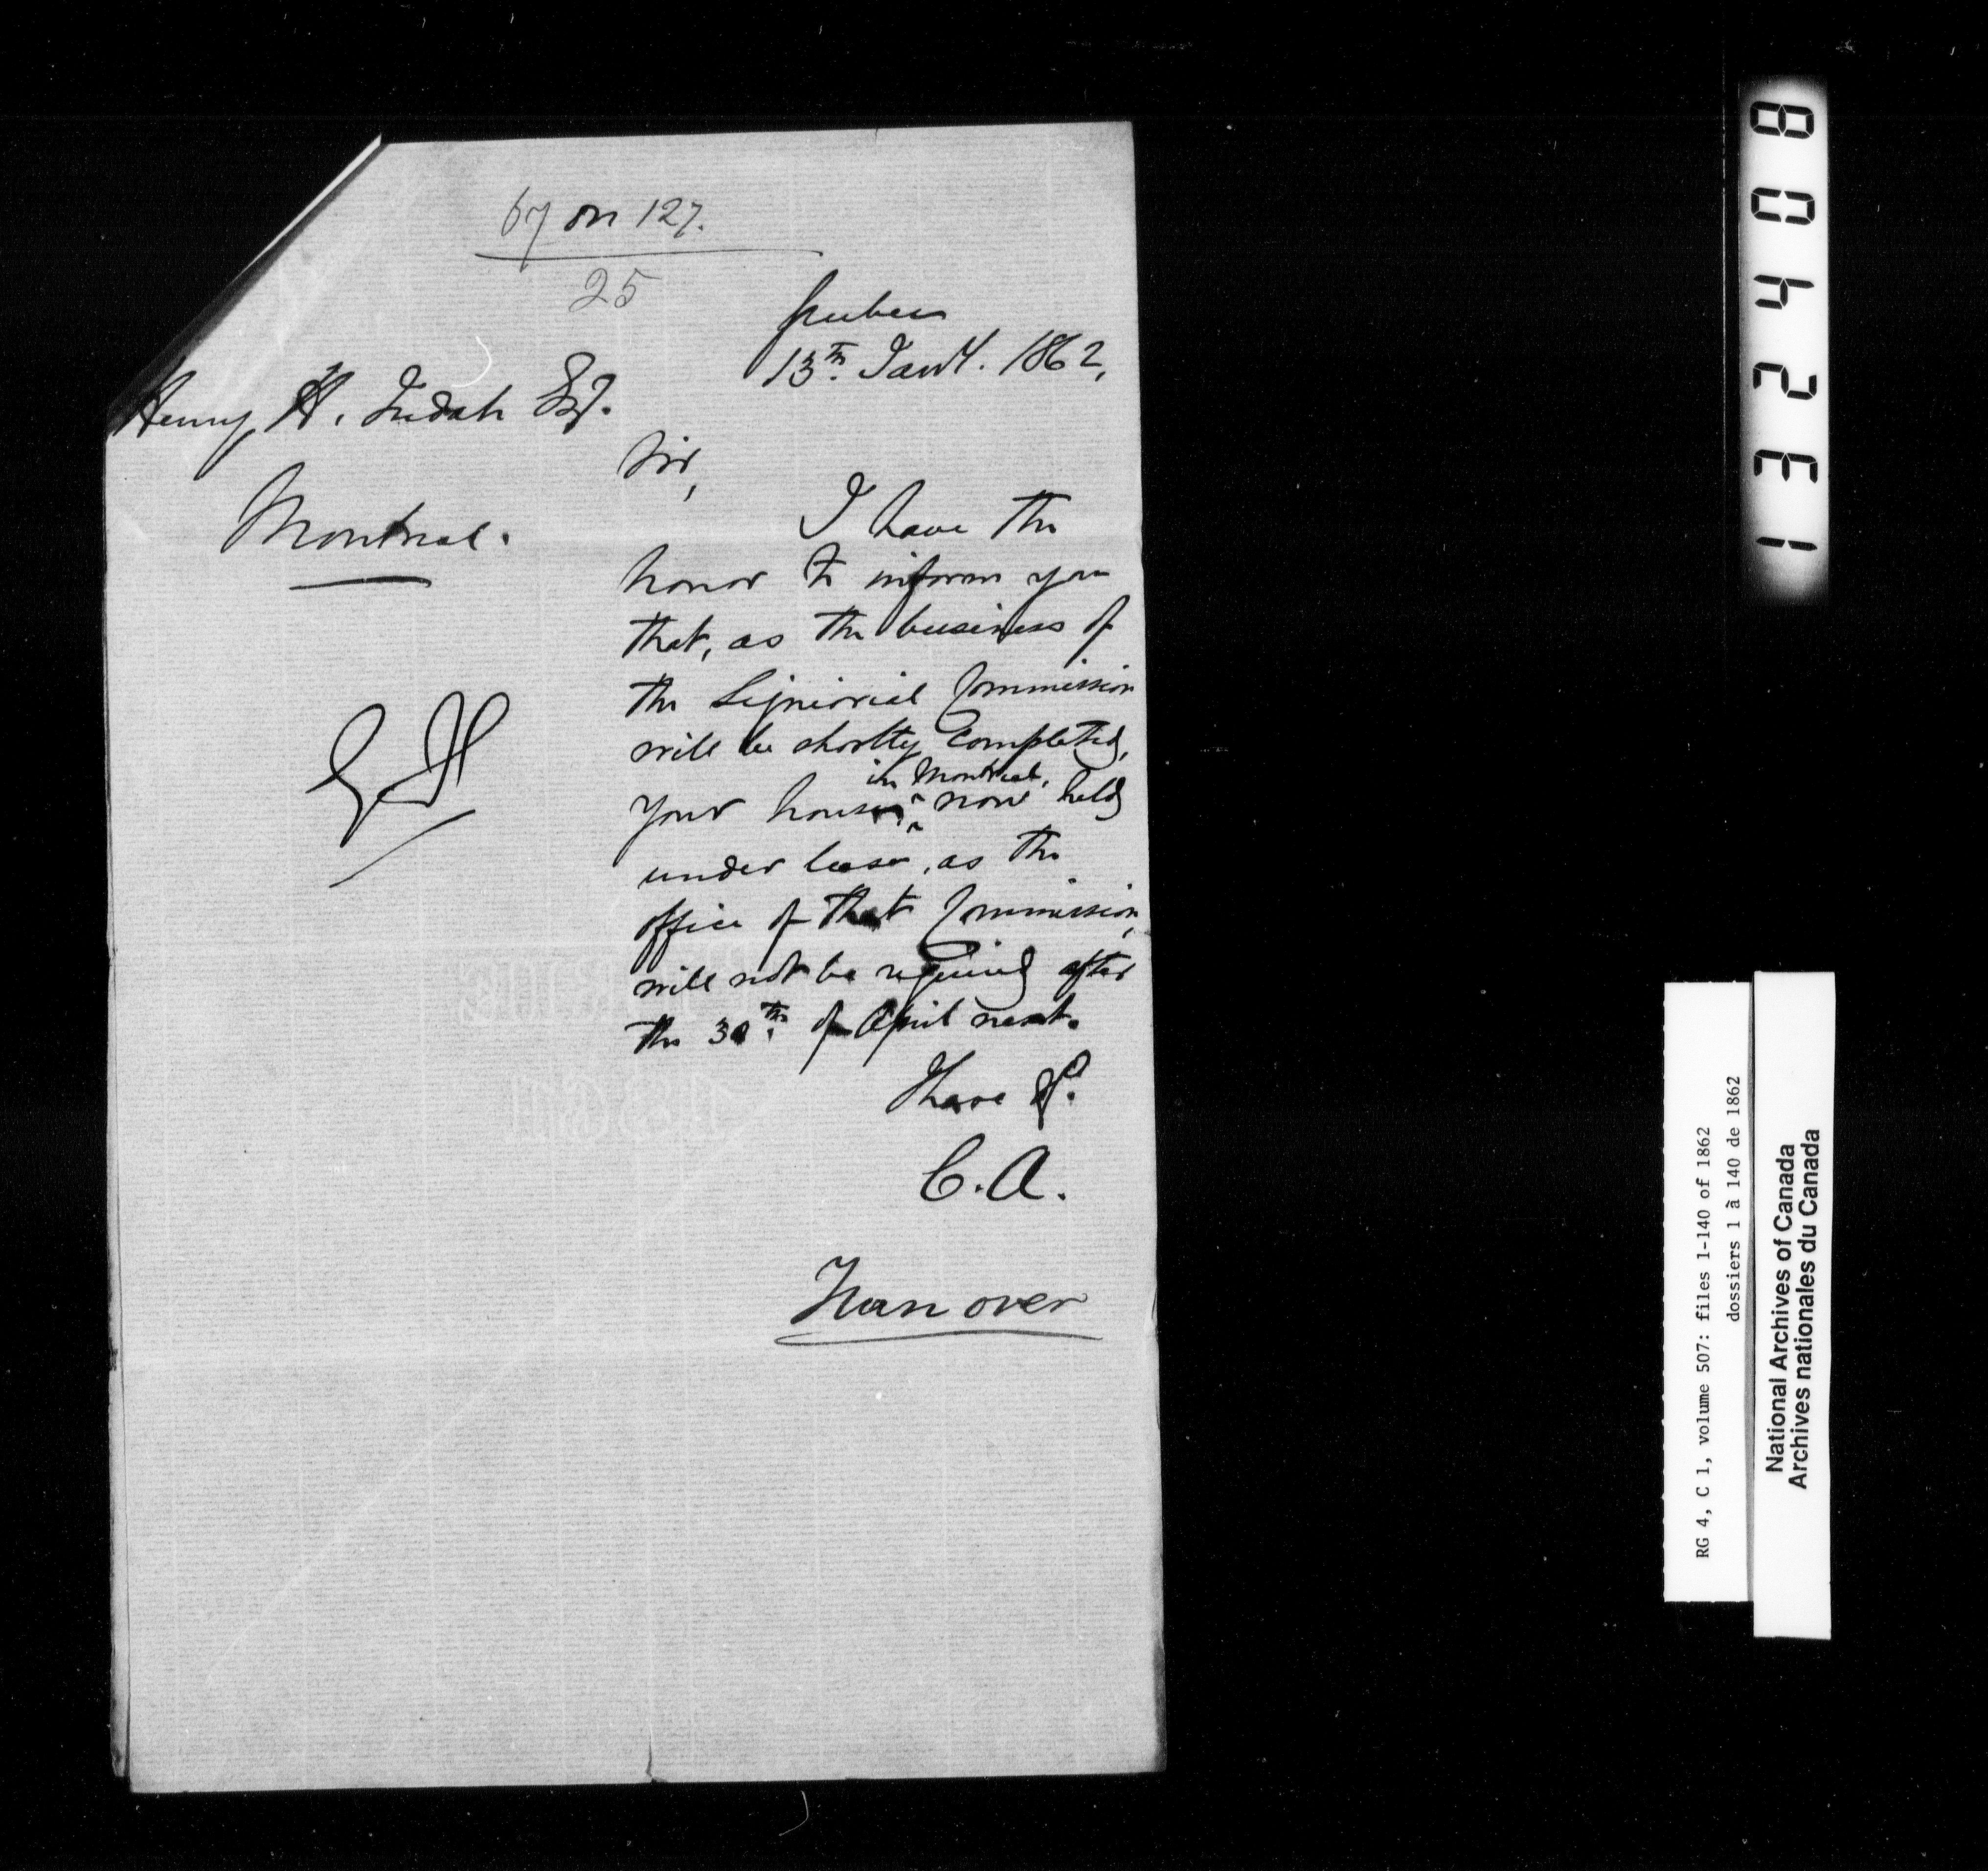 67 on 127.
25
Quebec
13th. Jany. 1862,
Henry H. Judah Esq.
Montreal.
Sir,
I have the
honor to inform you
that, as the business of
the Signiorial Commission
will be shortly completed,
your house in Montreal, now held
under lease, as the
office of that Commission,
will not be required after
the 30th. of April next.
I have &.
C.A.
Turn over
132408
RG 4, C 1, volume 507: files 1-140 of 1862
dossiers 1 à 140 de 1862
National Archives of Canada
Archives nationales du Canada